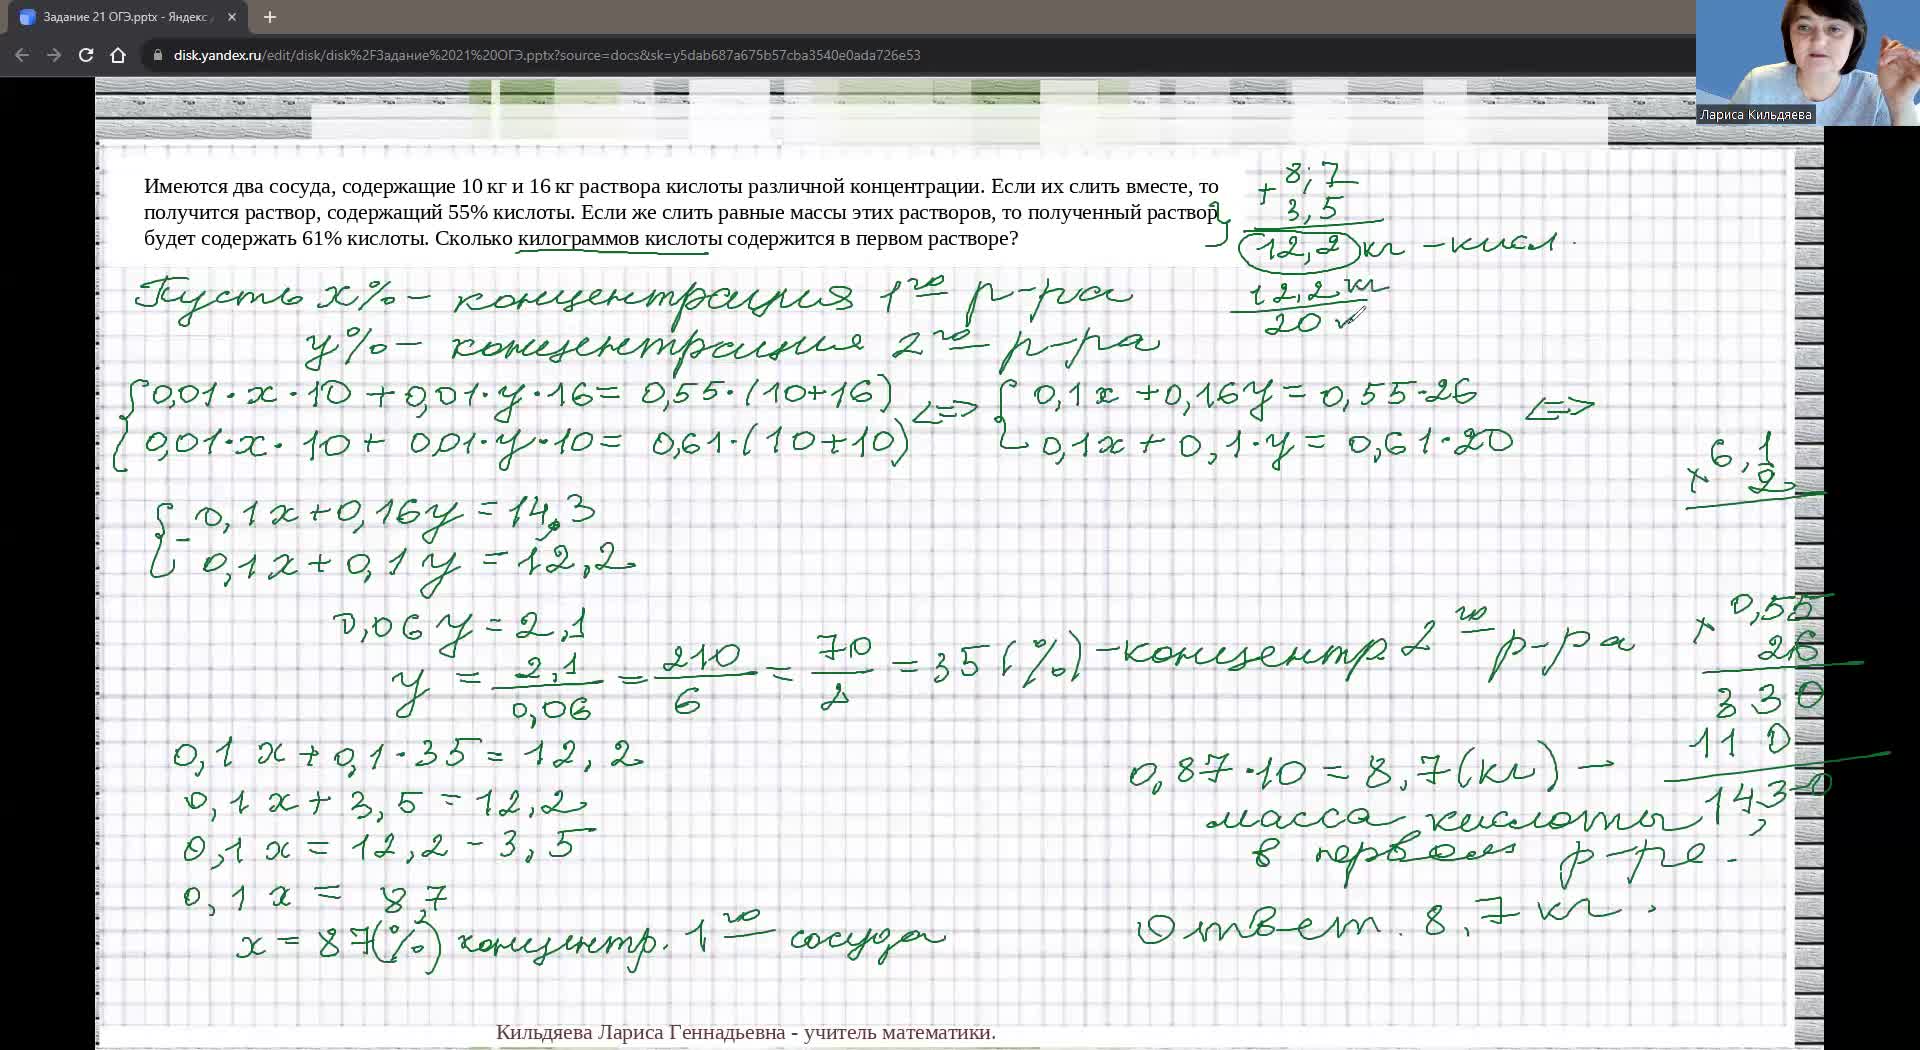 Задание 21 ОГЭ.pptx - Яндекс
disk.yandex.ru/edit/disk/disk%2FЗадание%2021%20ОГЭ.pptx?source=docs&sk=y5dab687a675b57cba3540e0ada726e53
Лариса Кильдяева
Имеются два сосуда, содержащие 10 кг и 16 кг раствора кислоты различной концентрации. Если их слить вместе, то
получится раствор, содержащий 55% кислоты. Если же слить равные массы этих растворов, то полученный раствор
будет содержать 61% кислоты. Сколько килограммов кислоты содержится в первом растворе?
+ 8,7
3,5
12,2 кг - кисл.
12,2 кг
20
Пусть x% - концентрация 1го р-ра
y% - концентрация 2го р-ра
0,01·x·10 + 0,01·y·16 = 0,55·(10+16) <=> 0,1x + 0,16y = 0,55·26 <=>
0,01·x·10 + 0,01·y·10 = 0,61·(10+10) 0,1x + 0,1·y = 0,61·20
× 6,1
2
0,1x + 0,16y = 14,3
- 0,1x + 0,1y = 12,2
0,06y = 2,1
y = 2,1/0,06 = 210/6 = 70/2 = 35 (%) - концентр. 2го р-ра
× 0,55
26
330
110
14,30
0,1x + 0,1·35 = 12,2
0,1x + 3,5 = 12,2
0,1x = 12,2 - 3,5
0,1x = 8,7
x = 87(%) концентр. 1го сосуда
0,87·10 = 8,7 (кг) -
масса кислоты
в первом р-ре.
Ответ. 8,7 кг.
Кильдяева Лариса Геннадьевна - учитель математики.